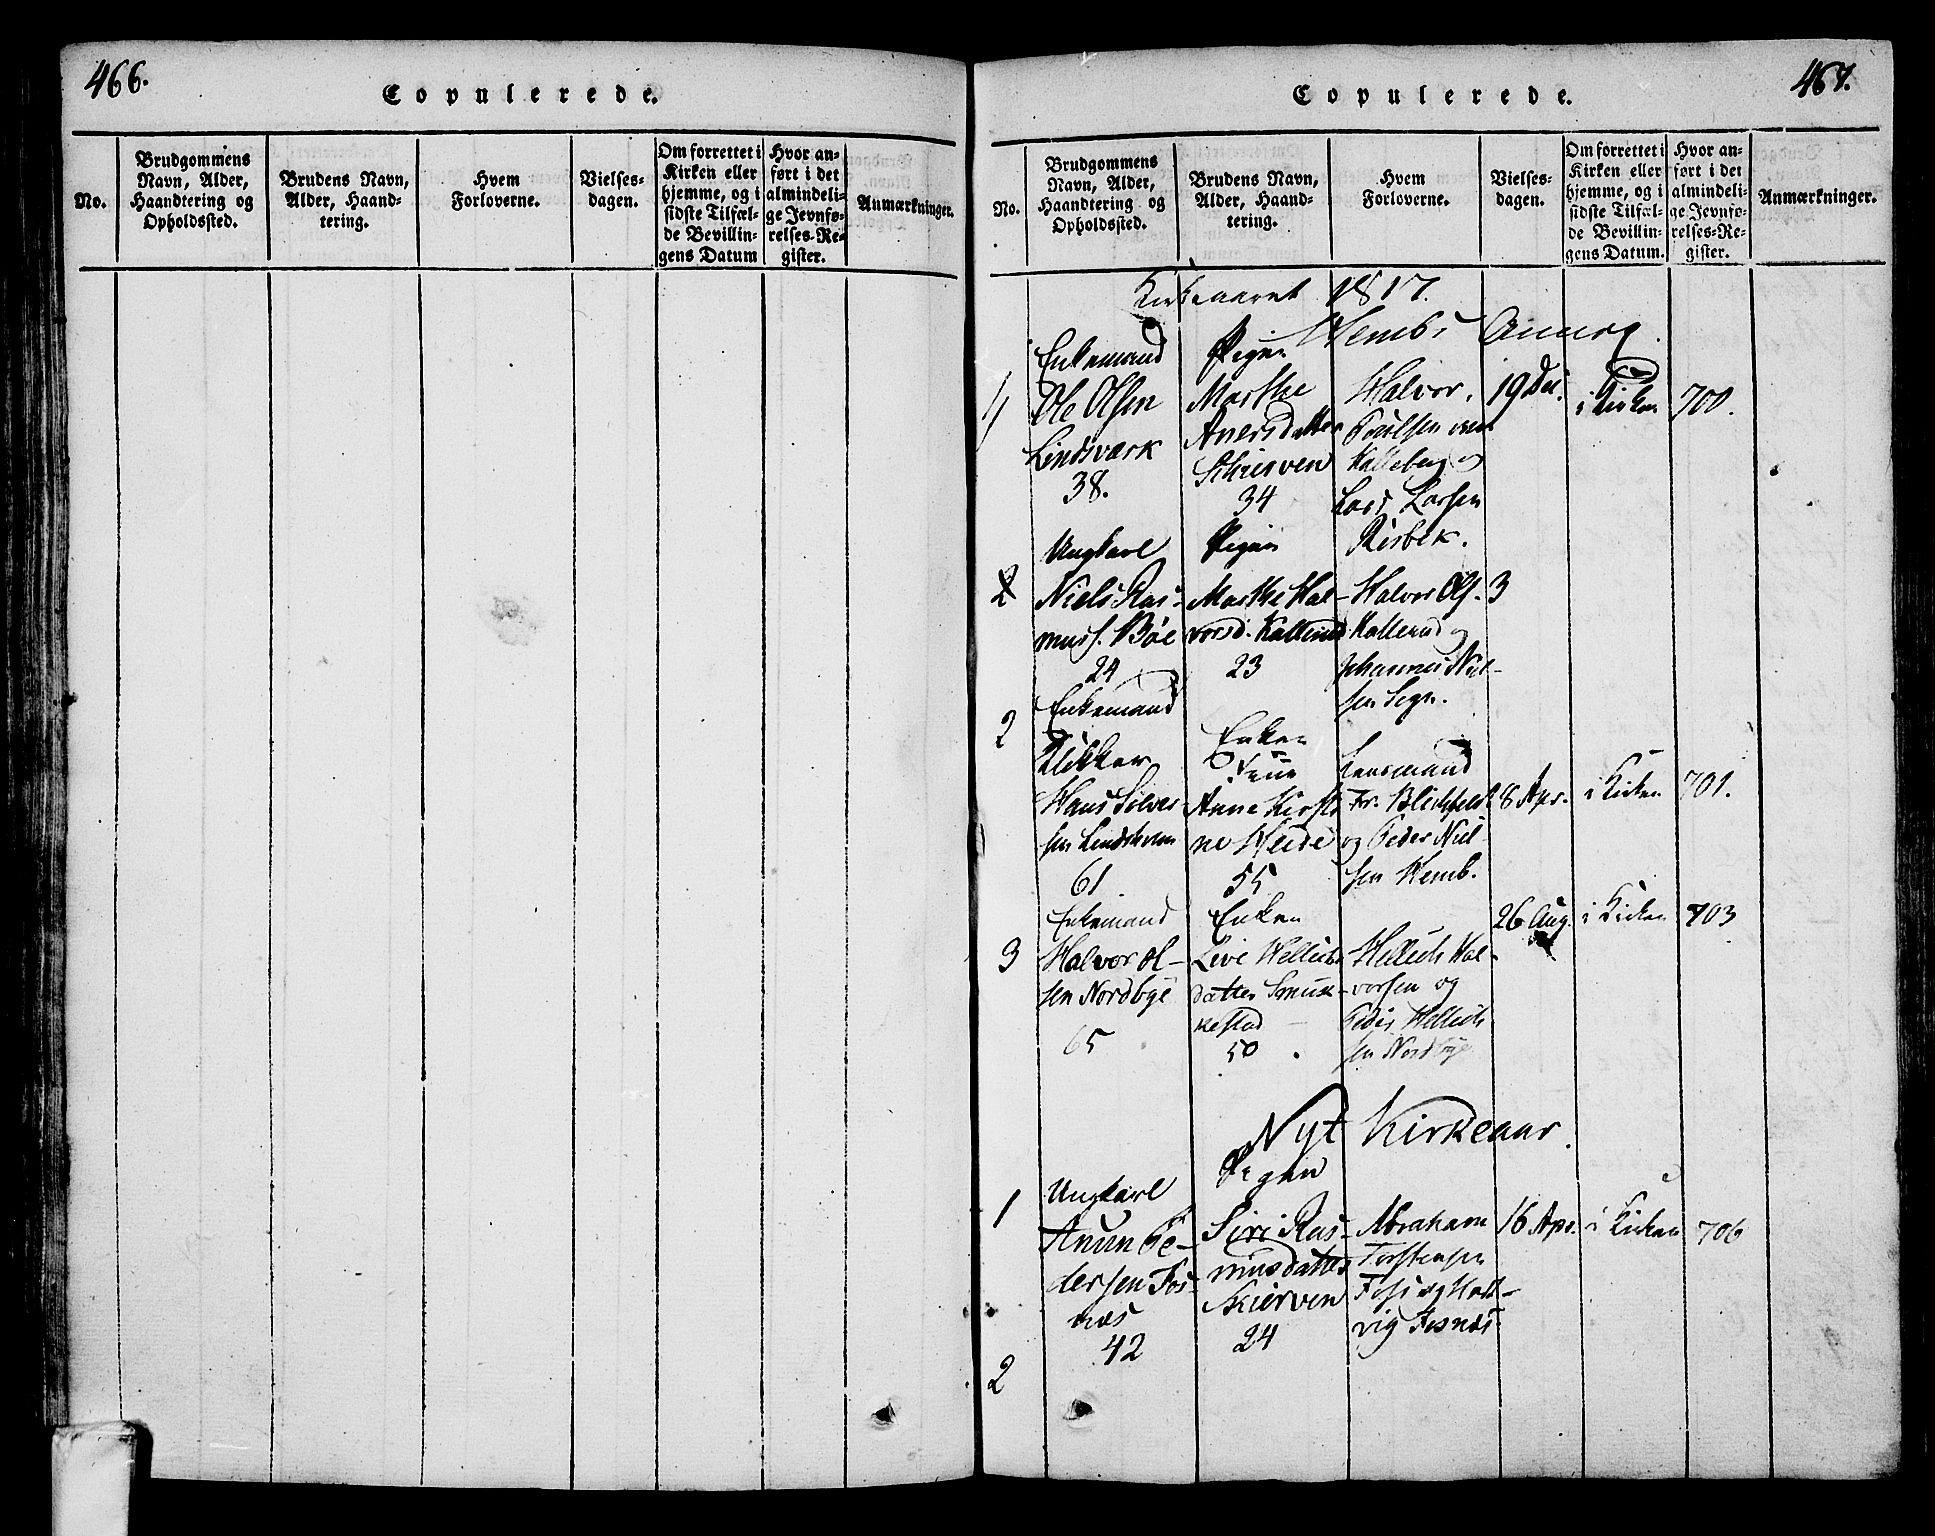 466.
Copulerede.
No.
Brudgommens
Navn, Alder,
Haandtering og
Opholdssted.
Brudens Navn,
Alder, Haand-
tering.
Hvem
Forloverne.
Vielses-
dagen.
Om forrettet i
Kirken eller
hjemme, og i
sidste Tilfæl-
de Bevillin-
gens Datum
Hvor an-
ført i det
almindeli-
ge Jevnfø-
relses-Re-
gister.
Anmærkninger.
467.
Copulerede.
No.
Brudgommens
Navn, Alder,
Haandtering og
Opholdssted.
Brudens Navn,
Alder, Haand-
tering.
Hvem
Forloverne.
Vielses-
dagen.
Om forrettet i
Kirken eller
hjemme, og i
sidste Tilfæl-
de Bevillin-
gens Datum.
Hvor an-
ført i det
almindeli-
ge Jevnfø-
relses-Re-
gister.
Anmærkninger.
Kirkeaaret 1817.
Hembs Annex.
1
Enkemand
Ole Olsen
Lindsværk
38.
Pigen
Marthe
Aversdatter
Schierven
34
Halvor
Poulsen
Kalleberg og
Lars Larsen
Risbek.
19 Dec.
i Kirken
700.
2
Ungkarl
Niels Ras-
muss. Böe
24
Pigen
Marthe Hal-
vorsd. Kallerud
23
Halvor Ols.
Kallerud og
Johannes Niel-
sen Segn.
3
2
Enkemand
Klokker
Hans Silves
sen
61
Enken
Anne Kirsti
ne Heide
55
Lensmand
Fr. Blichfeldt
og Peder Niel-
sen Hemb.
8 Apr.
i Kirken
701.
3
Enkemand
Halvor Ol-
sen Nordbye
65
Enken
Live Hellichs
datter Smuk-
kestad
50
Hellich Hal-
vorsen og
Peder Hellich
sen Nordbye
26 Aug.
i Kirken
703
Nyt Kirkeaar.
1
Ungkarl
Anun Pe-
dersen Fos-
næs
42
Pigen
Siri Ras-
musdatter
Skierven
24
Abraham
Torstensen
Foss og Hart-
vig Fosnæs
16 Apr.
i Kirken
706
2